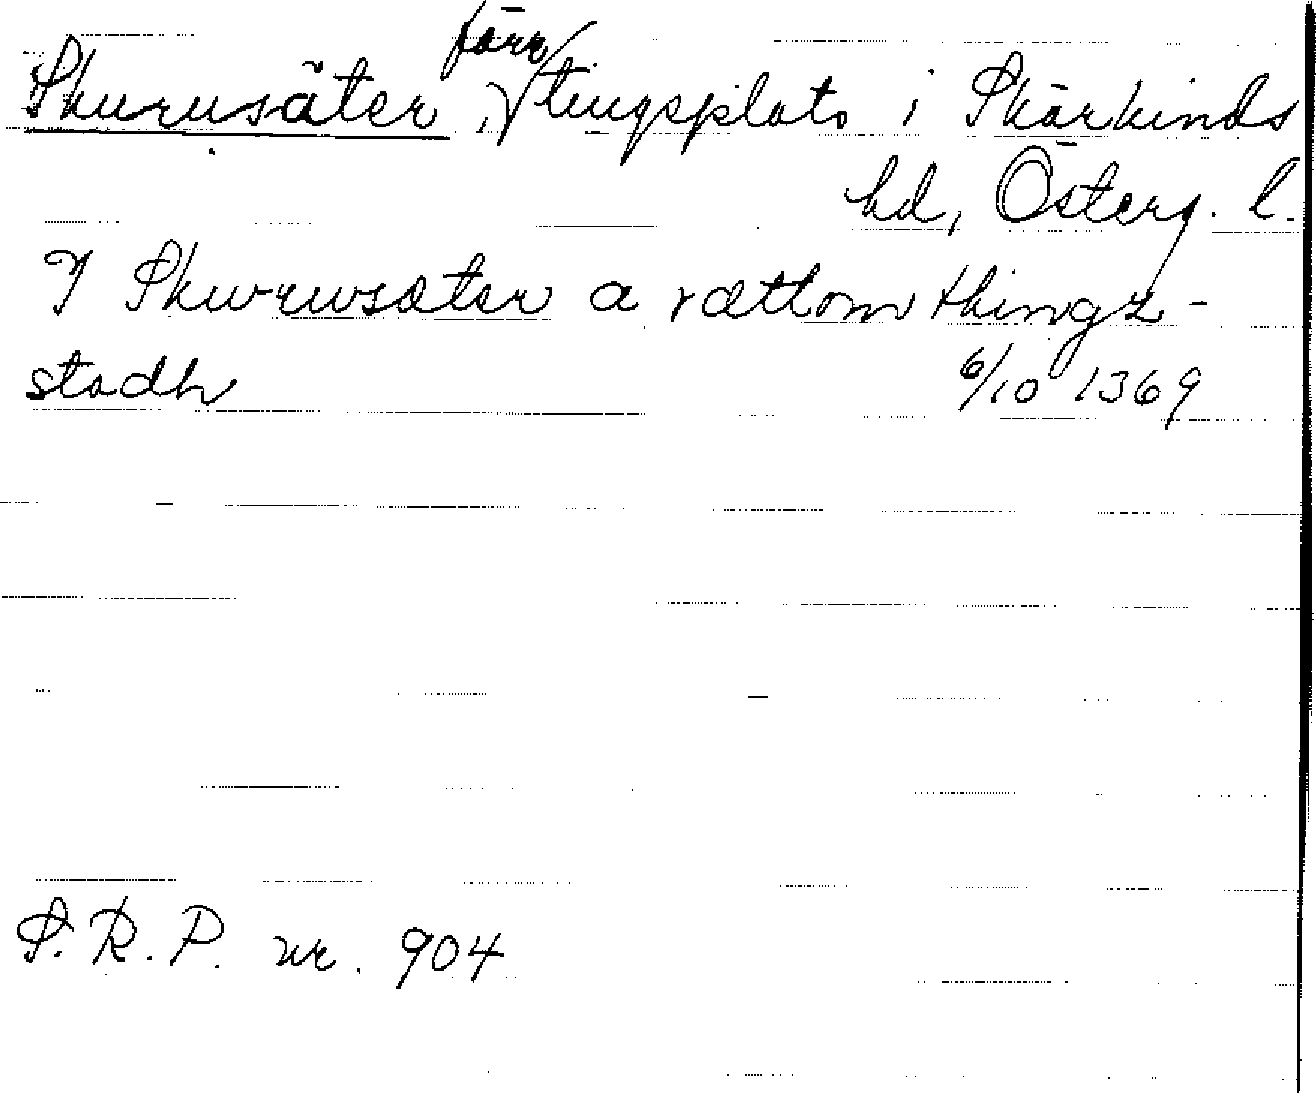 Skurusäter, förr tingsplats i Skärkinds
hd, Österg. l.
J Skurwsæter a rættom thingx-
stadh 6/10 1369
S.R.P. nr. 904